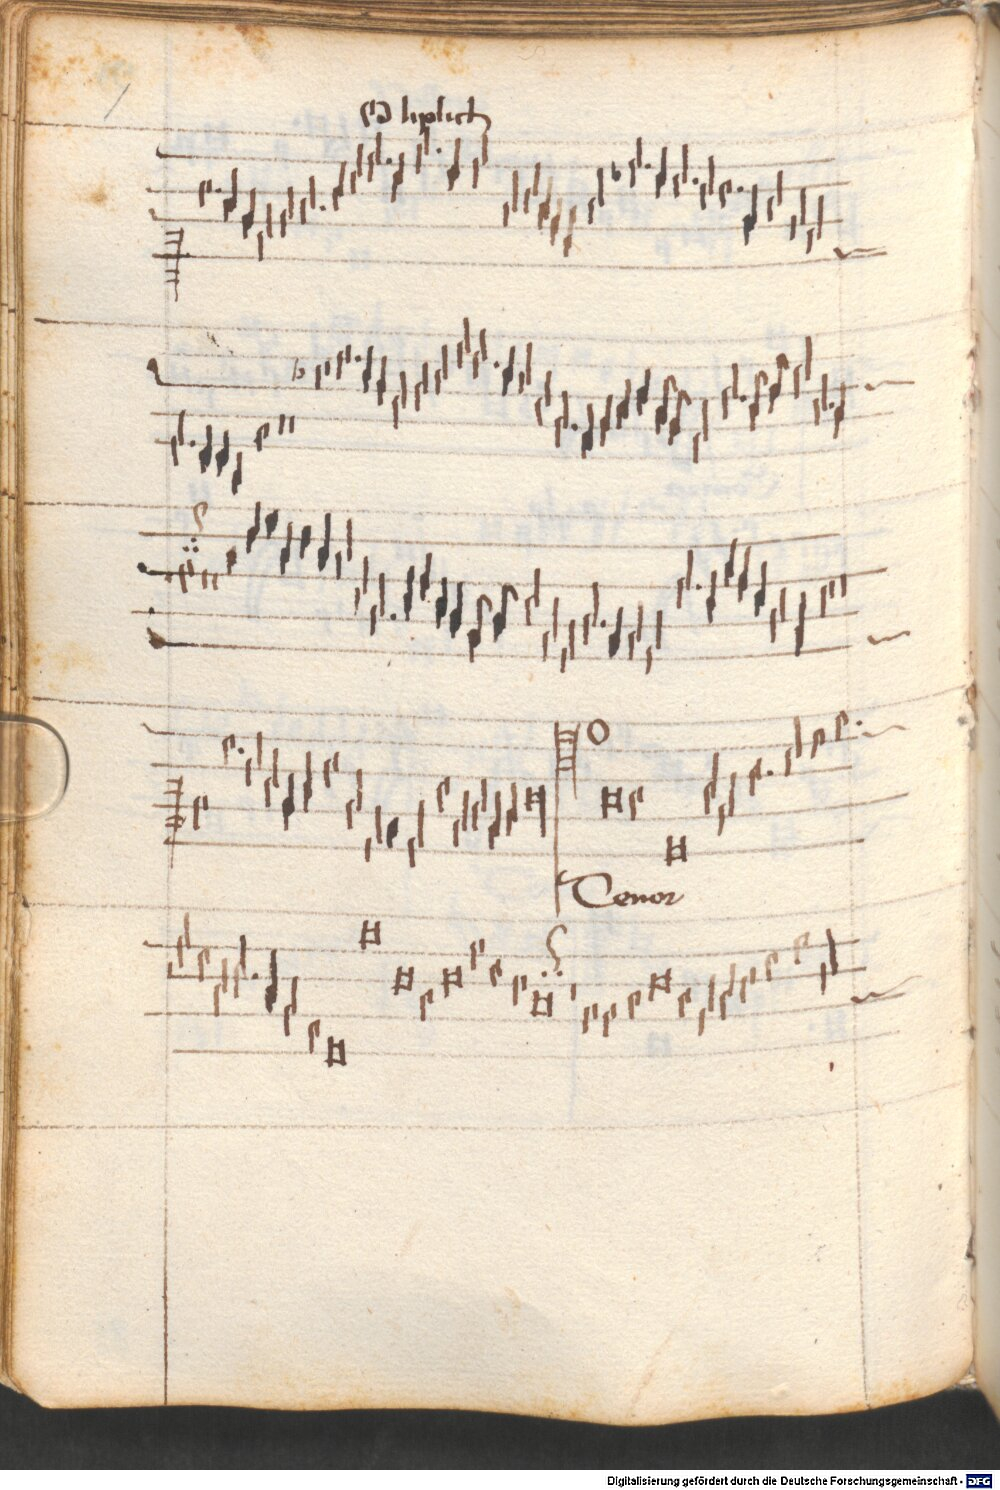 liplich
Tenor
Digitalisierung gefördert durch die Deutsche Forschungsgemeinschaft - DFG